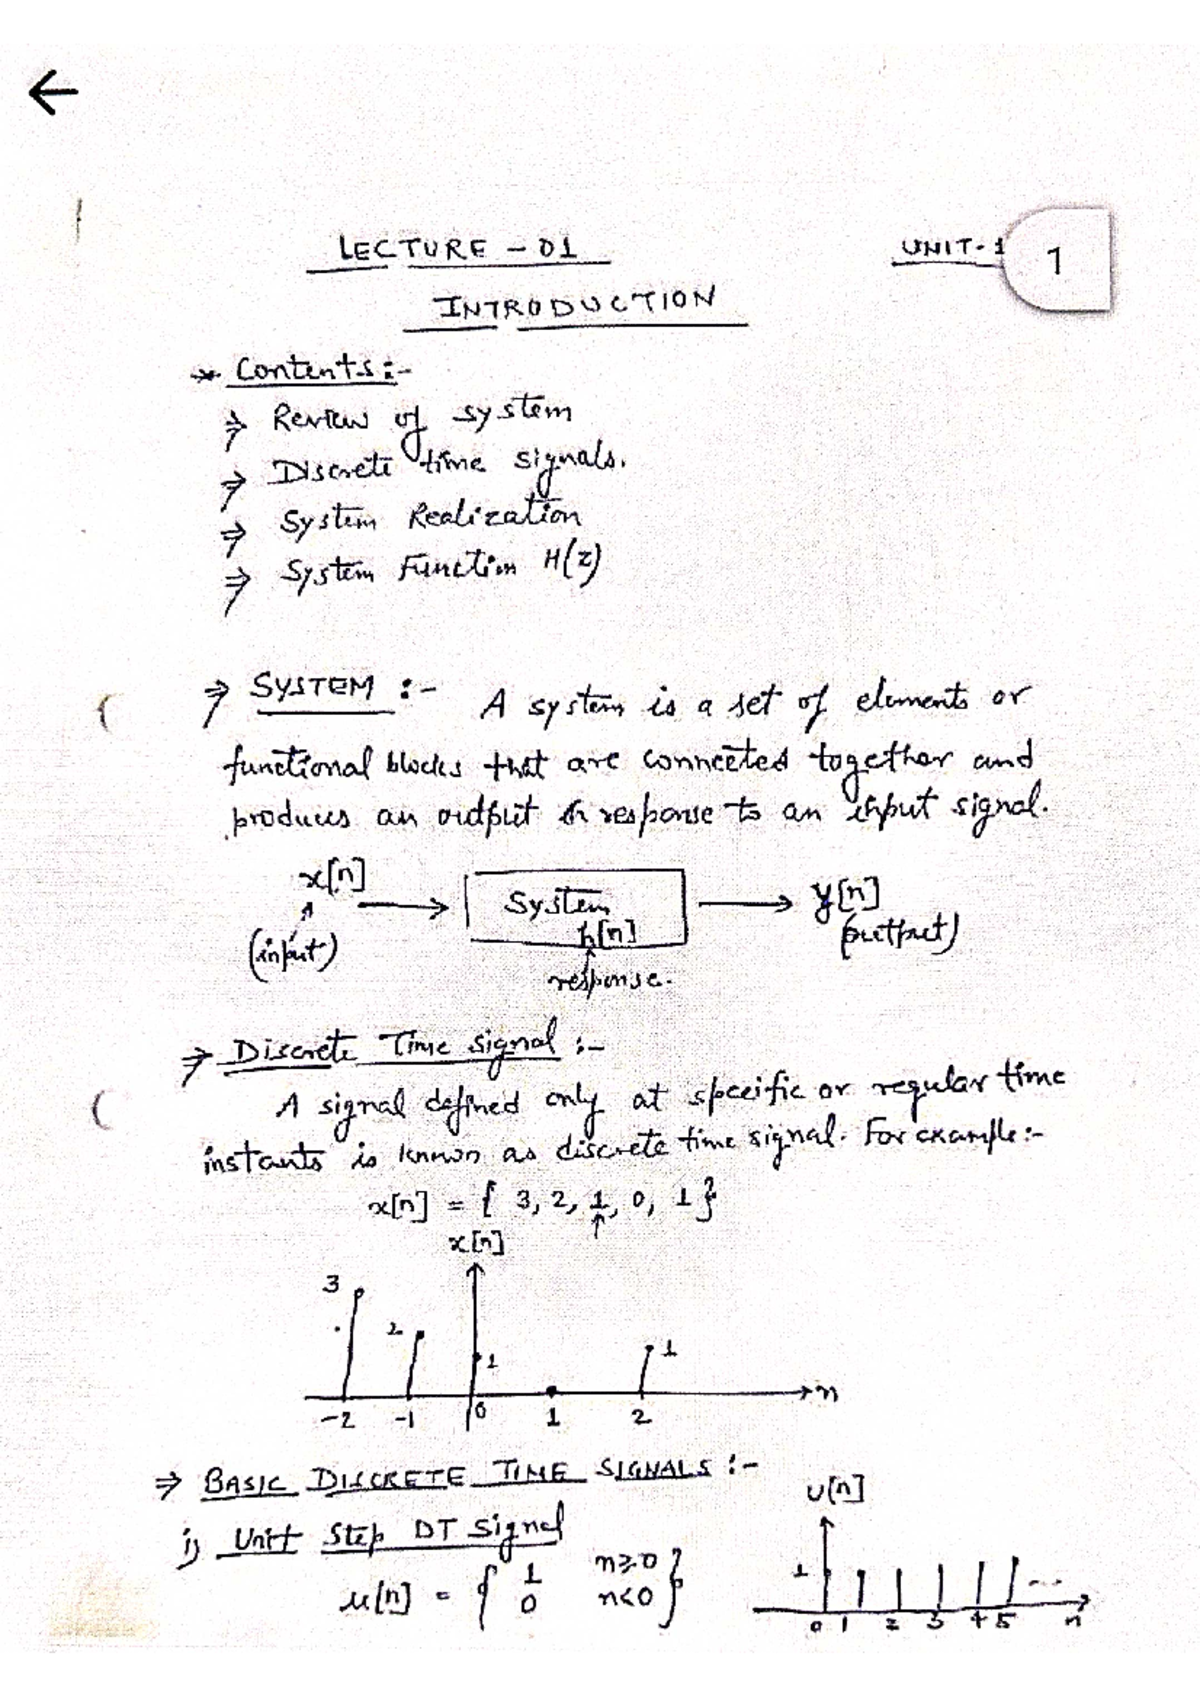 LECTURE - 01
UNIT-1
1
INTRODUCTION
* Contents :-
⇒ Review of system
⇒ Discrete time signals.
⇒ System Realization
⇒ System Function H(z)
⇒ SYSTEM :- A system is a set of elements or
functional blocks that are connected together and
produces an output in response to an input signal.
x[n] → System h[n] → y[n]
(input) response. (output)
⇒ Discrete Time Signal :-
A signal defined only at specific or regular time
instants is known as discrete time signal. For example:-
x[n] = { 3, 2, 1, 0, 1 }
↑
x[n]
3
2
1
1
-2 -1 0 1 2 n
⇒ BASIC DISCRETE TIME SIGNALS :-
i) Unit Step DT Signal
u[n] = { 1 n≥0
0 n<0 }
U[n]
1
...
0 1 2 3 4 5 n